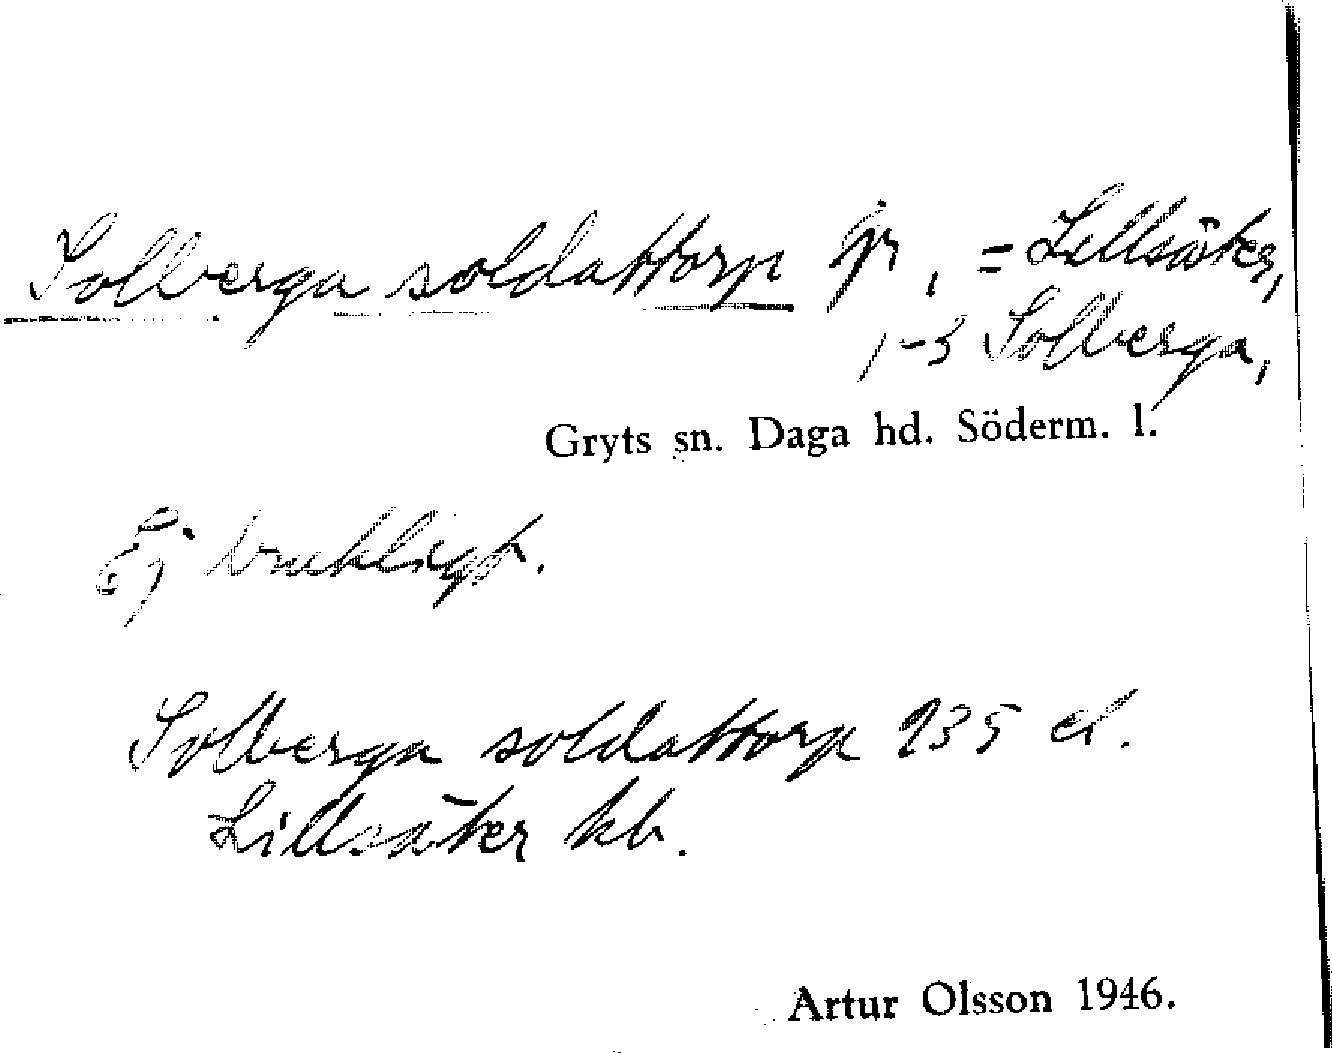 Solberga soldattorp fr, = Lillsäter,
1-3 Solberga,
Gryts sn. Daga hd. Söderm. l.
Ej brukligt.
Solberga soldattorp 235 el.
Lillsäter kb.
Artur Olsson 1946.